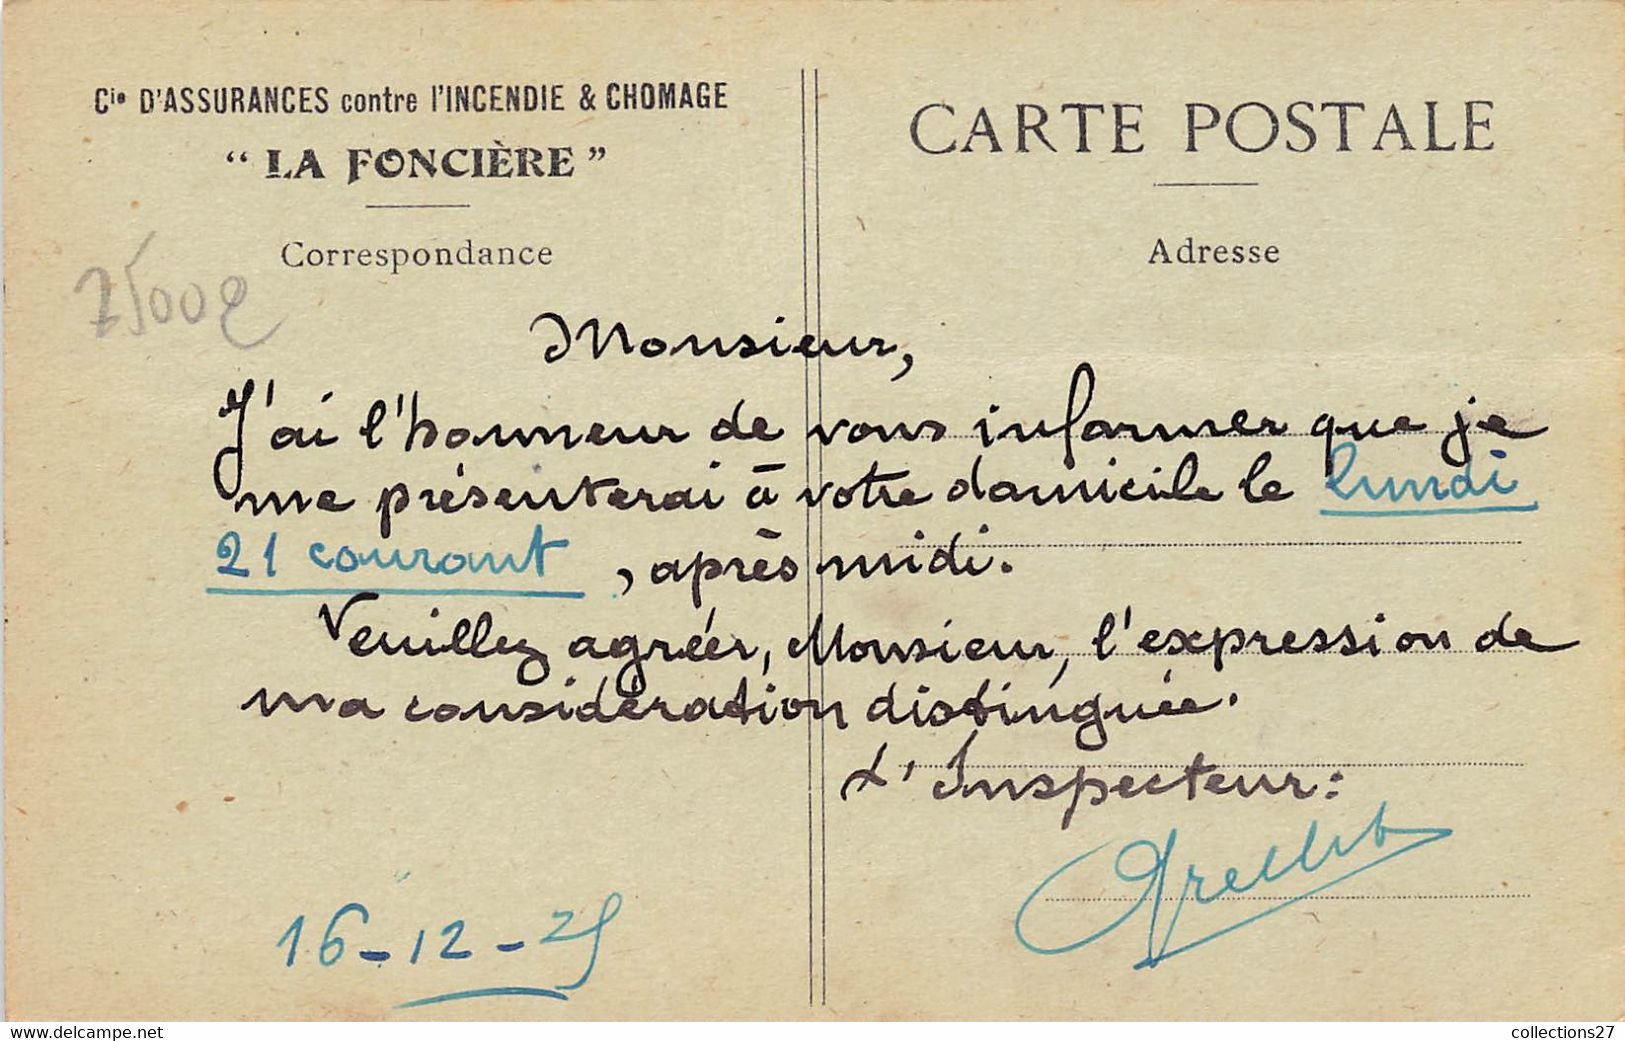 Cie D'ASSURANCES contre l'INCENDIE & CHOMAGE
“ LA FONCIÈRE ”
Correspondance
CARTE POSTALE
Adresse
Monsieur,
J'ai l'honneur de vous informer que je
me présenterai à votre domicile le lundi
21 courant, après midi.
Veuillez agréer, Monsieur, l'expression de
ma considération distinguée.
L'Inspecteur:
16-12-25
www.delcampe.net
collections27